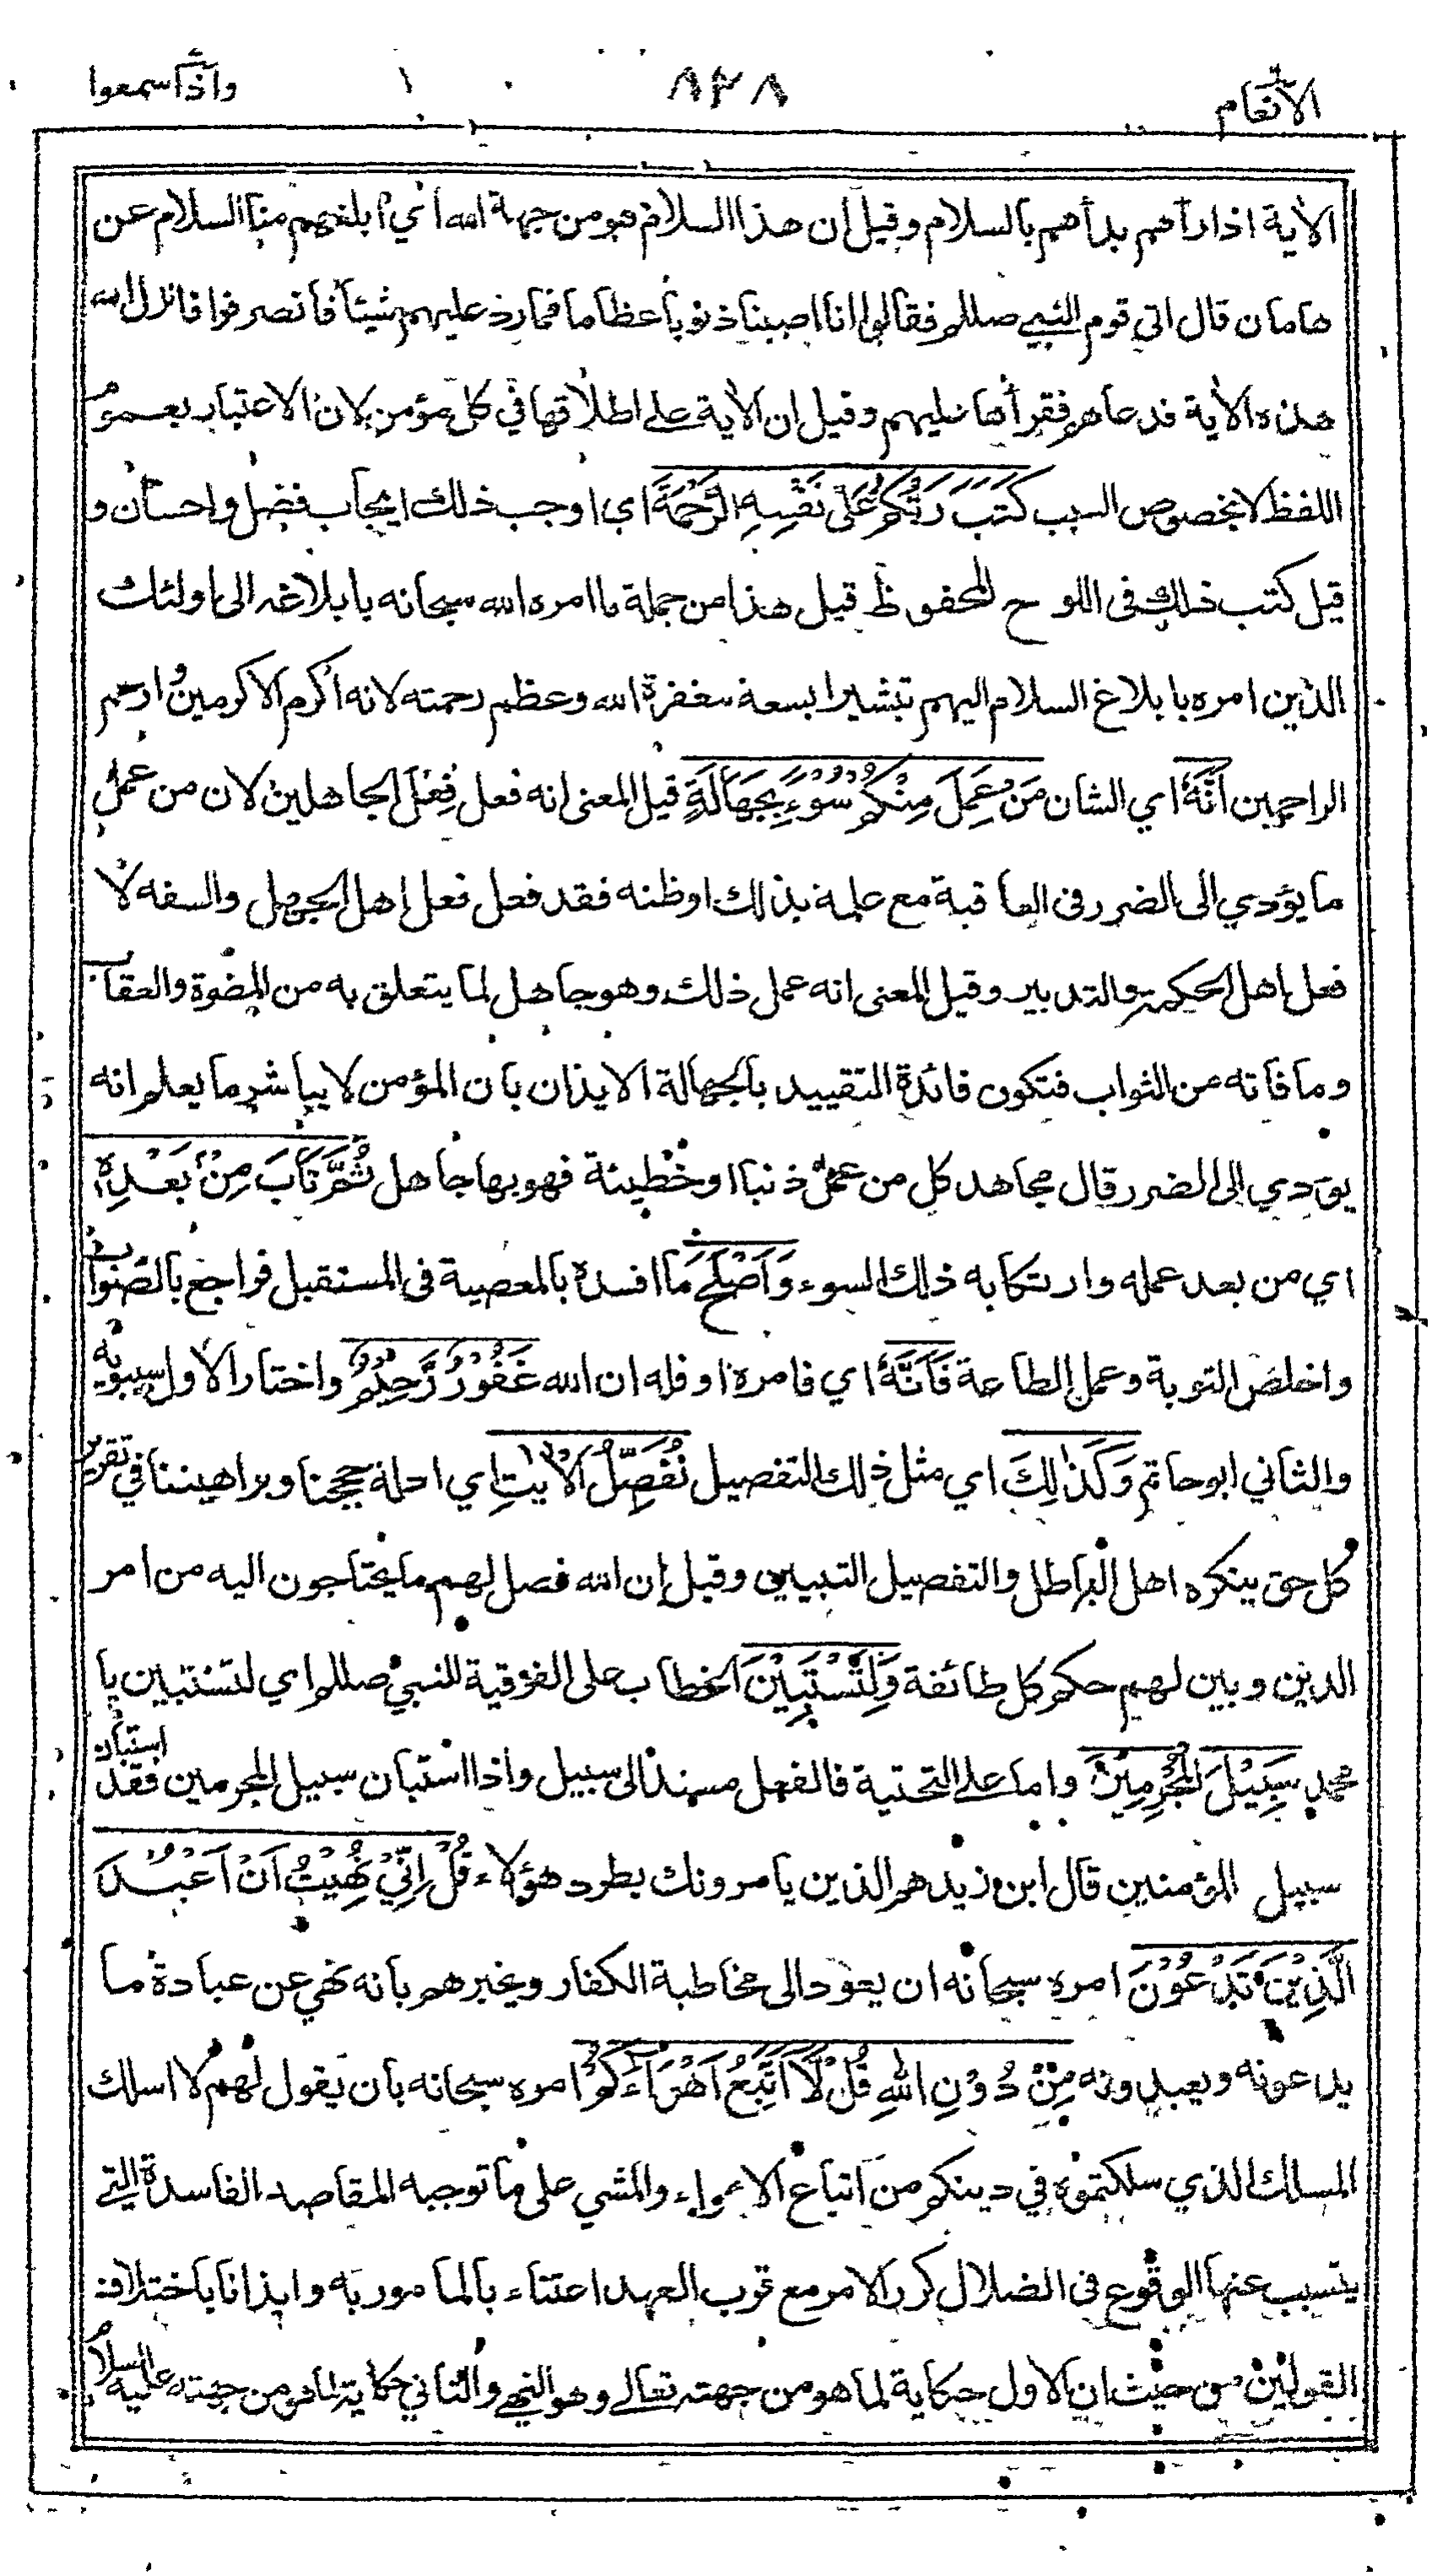 الانعام ٨٢٨ واذا سمعوا
الأية اذا رأهم بدأهم بالسلام وقيل أن هذا السلام هو من جهة الله أي أبلغهم منا السلام عن
هامان قال اتى قوم النبي صللم فقالوا انا اصبنا ذنوبا عظاما فما رد عليهم شيئا فانصرفوا فانزل الله
هذه الأية فدعاهم فقرأها عليهم وقيل ان الأية على اطلاقها في كل مؤمن لان الاعتبار بعموم
اللفظ لا بخصوص السبب كَتَبَ رَبُّكُمْ عَلَى نَفْسِهِ الرَّحْمَةَ اي اوجب ذلك ايجاب فضل واحسان و
قيل كتب ذلك في اللوح المحفوظ قيل هذا من جملة ما امره الله سبحانه بابلاغه الى اولئك
الذين امره بابلاغ السلام اليهم تبشيرا بسعة مغفرة الله وعظيم رحمته لانه اكرم الاكرمين وارحم
الراحمين اَنَّهُ اي الشان مَنْ عَمِلَ مِنْكُمْ سُوْءً بِجَهَالَةٍ قيل المعنى انه فعل فِعْلَ الجاهلين لان من عمل
ما يؤدي الى الضرر في العاقبة مع علمه بذلك او ظنه فقد فعل فعل اهل الجهل والسفه لا
فعل اهل الحكمة والتدبير وقيل المعنى انه عمل ذلك وهو جاهل لما يتعلق به من المضرة والعقاب
وما فاته من الثواب فتكون فائدة التقييد بالجهالة الايذان بان المؤمن لا يباشر ما يعلم انه
يؤدي الى الضرر قال مجاهد كل من عمل ذنبا او خطيئة فهو بها جاهل ثُمَّ تَابَ مِنْ بَعْدِهٖ
اي من بعد عمله وارتكابه ذلك السوء وَاَصْلَحَ ما افسده بالمعصية في المستقبل فراجع بالصواب
واخلص التوبة وعمل الطاعة فَاَنَّهٗ اي فامره او فله ان الله غَفُوْرٌ رَّحِيْمٌ واختار الاول سيبويه
والثاني ابو حاتم وَكَذٰلِكَ اي مثل ذلك التفصيل نُفَصِّلُ الْاٰيٰتِ اي ادلة حججنا وبراهيننا في تقرير
كل حق ينكره اهل الباطل والتفصيل التبيين وقيل إن الله فصل لهم ما يحتاجون اليه من امر
الدين وبين لهم حكم كل طائفة وَلِتَسْتَبِيْنَ الخطاب على الفوقية للنبي صللم اي لتستبين يا
محمد سَبِيْلَ الْمُجْرِمِيْنَ واما على التحتية فالفعل مسند الى سبيل واذا استبان سبيل المجرمين فقد استبان
سبيل المؤمنين قال ابن زيد هم الذين يامرونك بطرد هؤلاء قُلْ اِنِّيْ نُهِيْتُ اَنْ اَعْبُدَ
الَّذِيْنَ تَدْعُوْنَ امره سبحانه ان يعود الى مخاطبة الكفار ويخبرهم بانه نهي عن عبادة ما
يدعونه ويعبدونه مِنْ دُوْنِ اللهِ قُلْ لَّا اَتَّبِعُ اَهْوَاءَكُمْ امره سبحانه بان يقول لهم لا اسلك
المسلك الذي سلكتموه في دينكم من اتباع الاهواء والمشي على ما توجبه المقاصد الفاسدة التي
يتسبب عنها الوقوع في الضلال كرر الامر مع قرب العهد اعتناء بالمامور به وايذانا باختلاف
القولين من حيث ان الاول حكاية لما هو من جهته تعالى وهو النهي والثاني حكاية لما هو من جهته عليه السلام